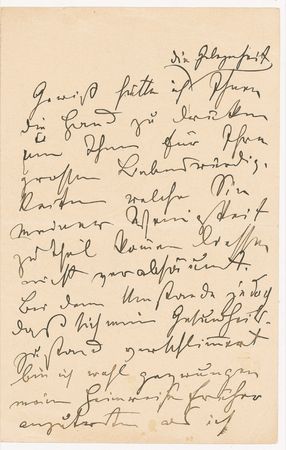 die Gelegenheit
Gewiß hätte ich Ihnen
die Hand zu drücken
um Ihnen für Ihre
grossen Liebenswürdig-
keiten welche Sie
meiner Wenigkeit
zu Theil komen liessen
nicht verabsäumt.
Bei dem Umstande jedoch
daß sich mein Gesundheits-
zustand verschlimert
bin ich wohl gezwungen
meine Heimreise früher
anzutreten als ich